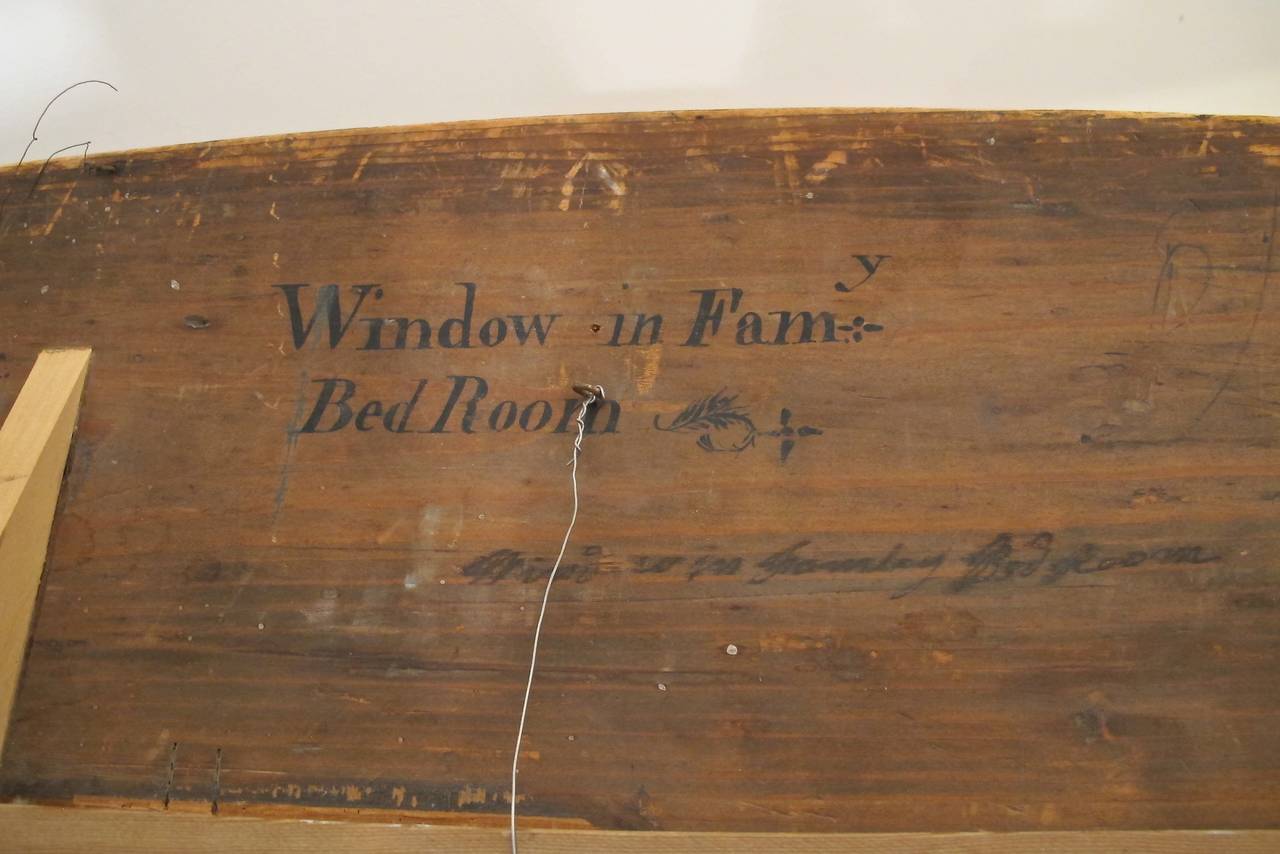 Window in Famʸ
Bed Room
Wind=w in Familey Bed Room